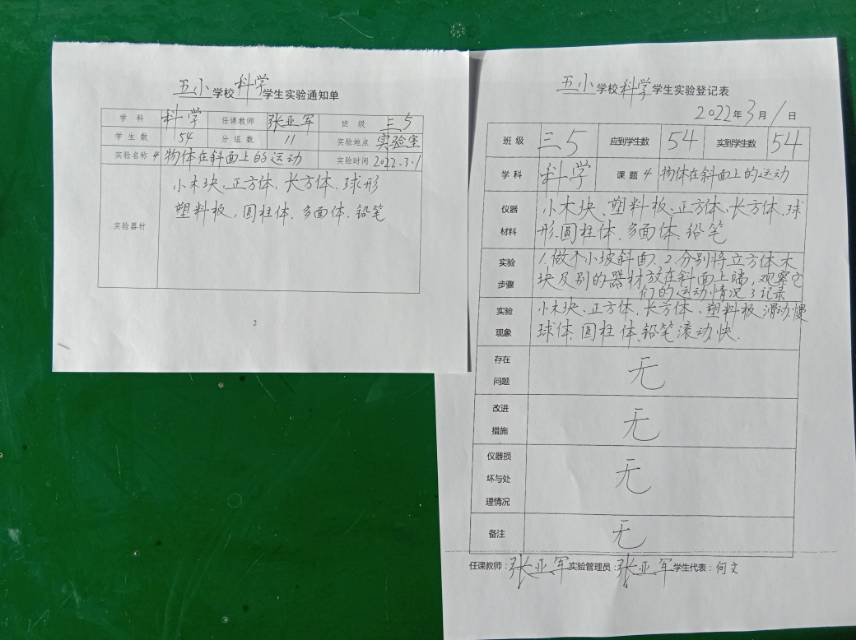 五小学校科学学生实验通知单
学科 科学 任课教师 张亚军 班级 三5
学生数 54 分组数 11 实验地点 实验室
实验名称 4 物体在斜面上的运动 实验时间 2022.3.1
小木块、正方体、长方体、球形
塑料板、圆柱体、多面体、铅笔
实验器材
2
五小学校科学学生实验登记表
2022年3月1日
班级 三5 应到学生数 54 实到学生数 54
学科 科学 课题 4 物体在斜面上的运动
仪器 小木块、塑料板、正方体、长方体、球
材料 形、圆柱体、多面体、铅笔
实验 1.做个小坡斜面、2.分别将立方体木
块及别的器材放在斜面上端,观察它
步骤 们的运动情况 3记录
实验 小木块、正方体、长方体、塑料板滑动慢
现象 球体、圆柱体、铅笔滚动快.
存在
问题 无
改进
措施 无
仪器损
坏与处 无
理情况
备注 无
任课教师:张亚军 实验管理员:张亚军 学生代表:何文